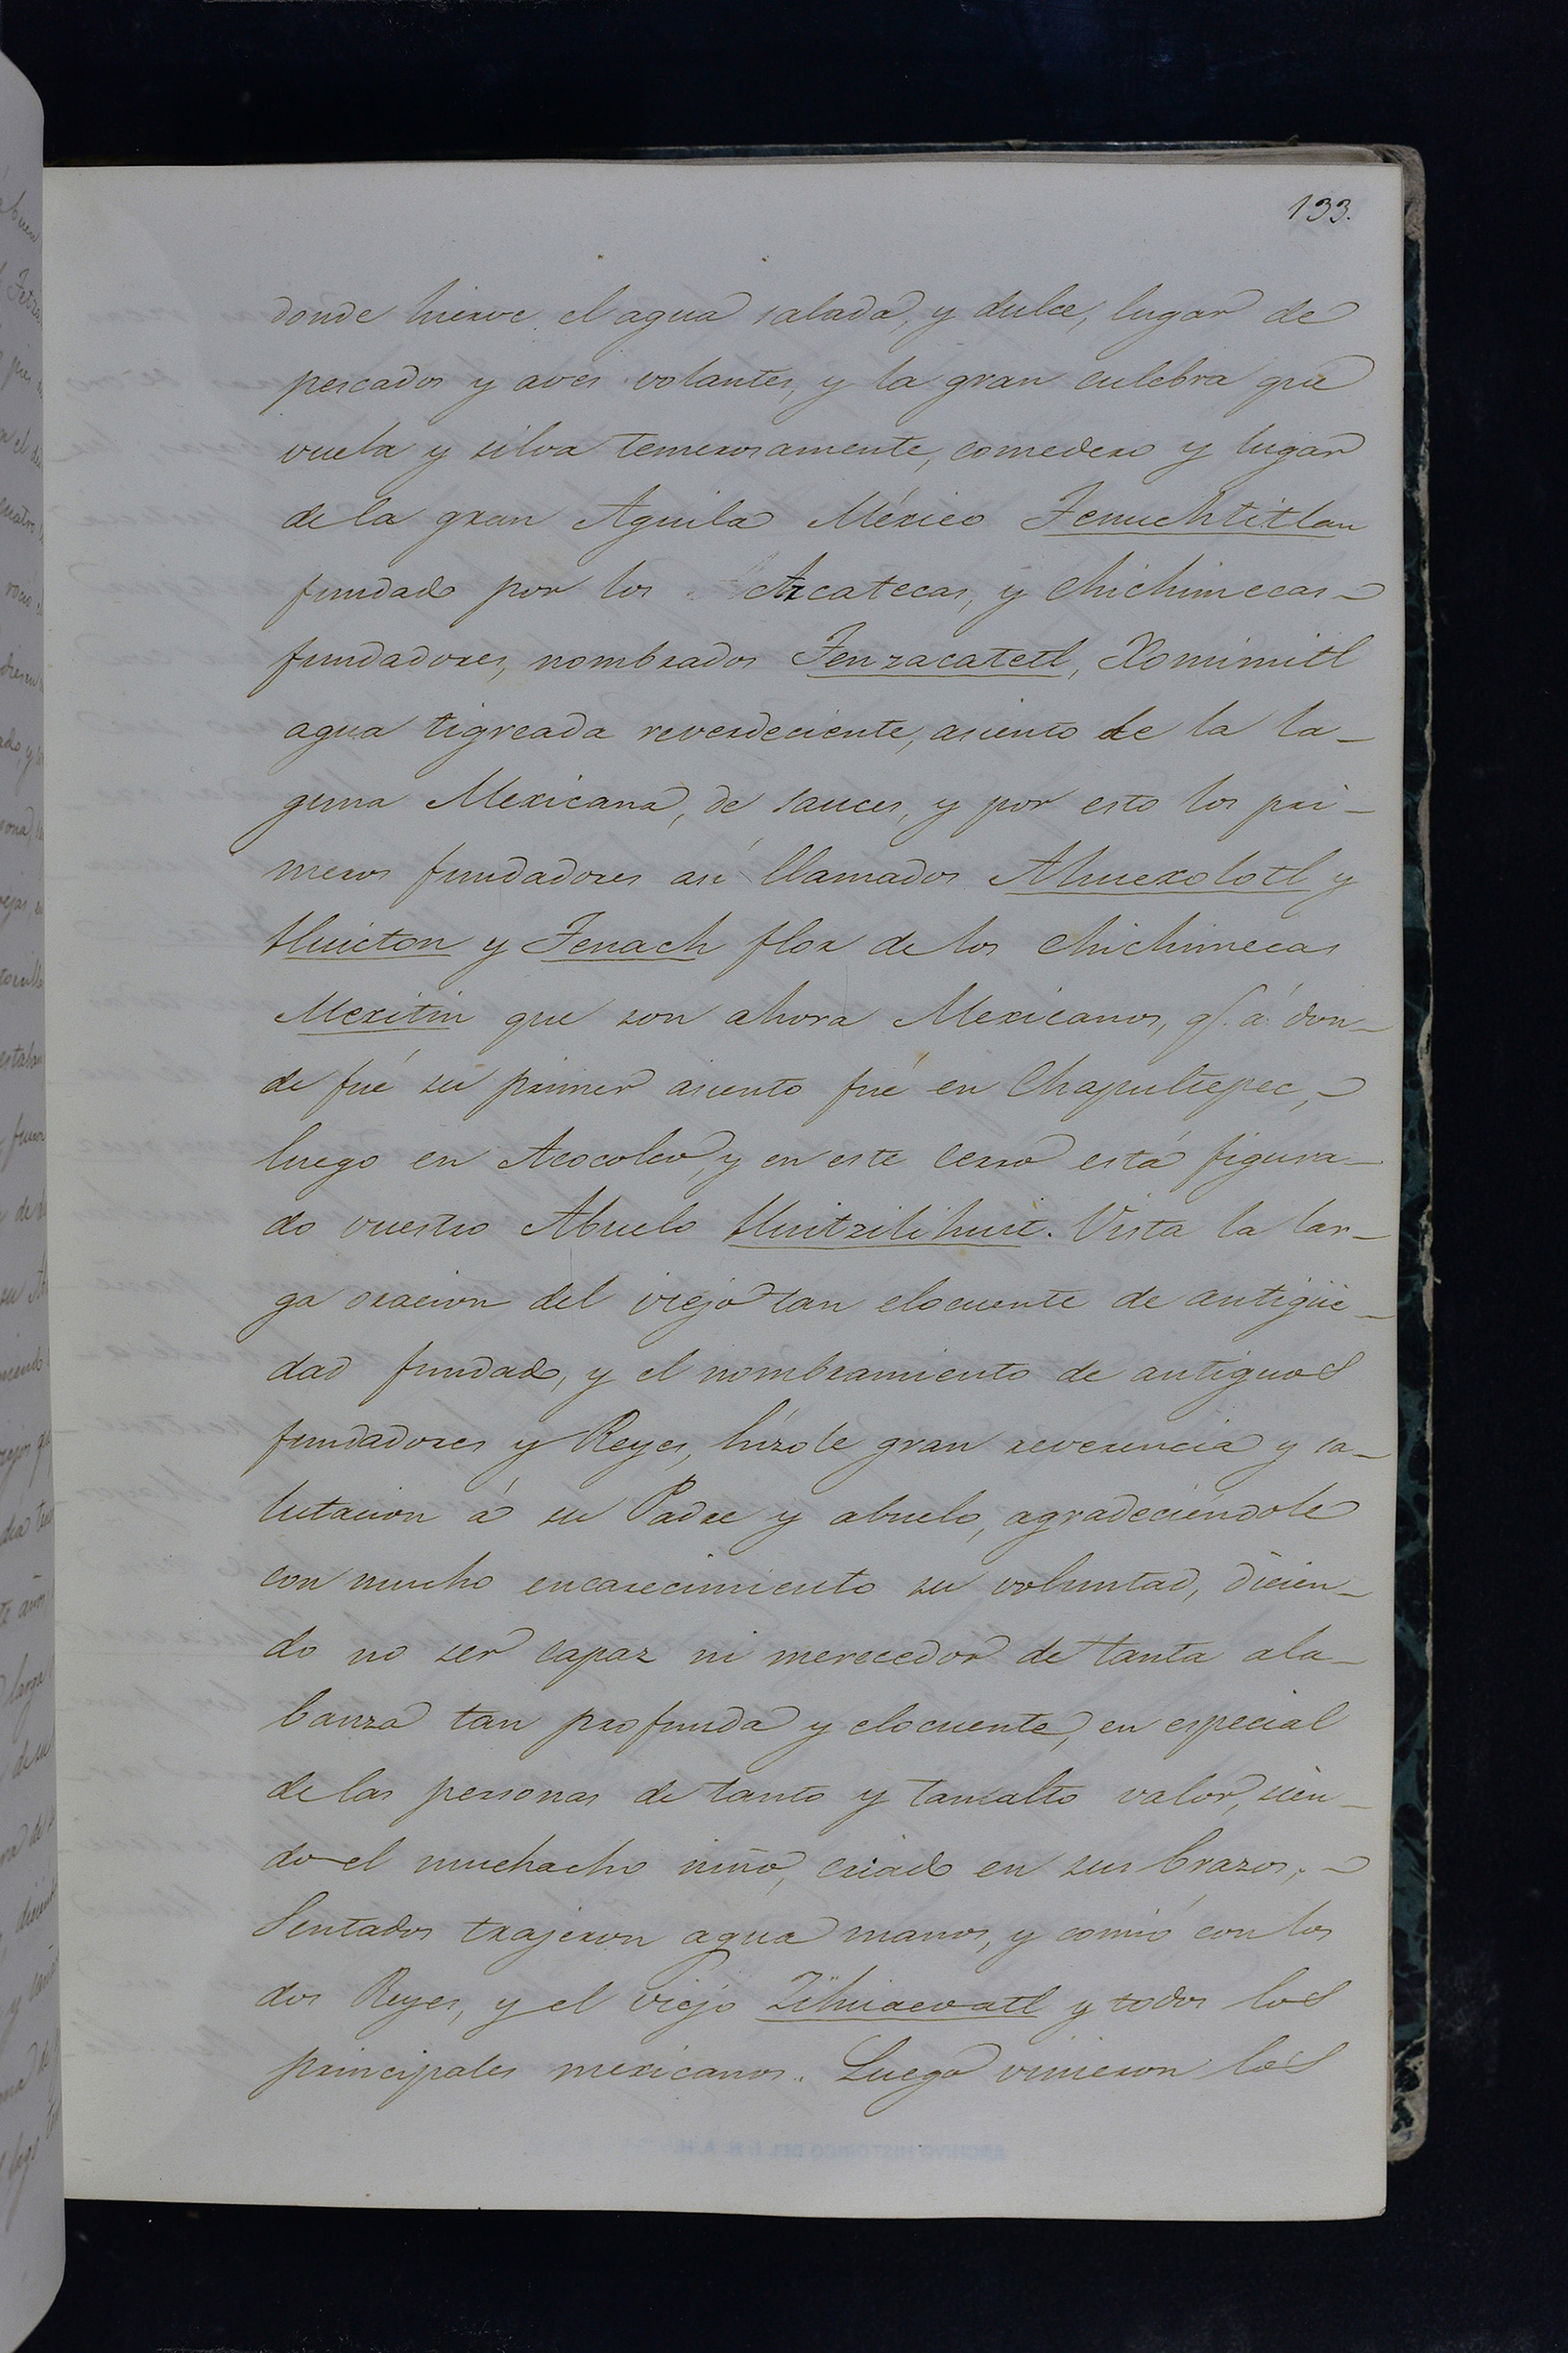 133.
donde hierve el agua salada, y dulce, lugar de
pescados y aves volantes, y la gran culebra que
vuela y silva temerosamente, comedero y lugar
de la gran Aguila México Tenuchtitlan
fundado por los Azcatecas, y Chichimecas
fundadores, nombrados Tenzacatetl, Xomimitl
agua tigreada reverdeciente, asiento de la la-
guna Mexicana, de sauces, y por esto los pri-
meros fundadores asi llamados Ahuexolotl y
Huicton y Tenach flor de los Chichimecas
Mexitin que son ahora Mexicanos, q.e á don-
de fué su primer asiento fué en Chapultepec,
luego en Acocolco, y en este cerro está figura-
do vuestro Abuelo Huitzilihuit. Vista la lar-
ga oracion del viejo tan elocuente de antigüe-
dad fundado, y el nombramiento de antiguos
fundadores y Reyes, hízole gran reverencia y sa-
lutacion á su Padre y abuelo, agradeciéndole
con mucho encarecimiento su voluntad, dicien-
do no ser capaz ni merecedor de tanta ala-
banza tan profunda y elocuente, en especial
de las personas de tanto y tan alto valor, sien-
do el muchacho niño, criado en sus brazos;
Sentados trajeron agua manos, y comió con los
dos Reyes, y el viejo Zihuacoatl y todos los
principales mexicanos. Luego vinieron los
ARCHIVO HISTORICO DEL I. N. A. H.